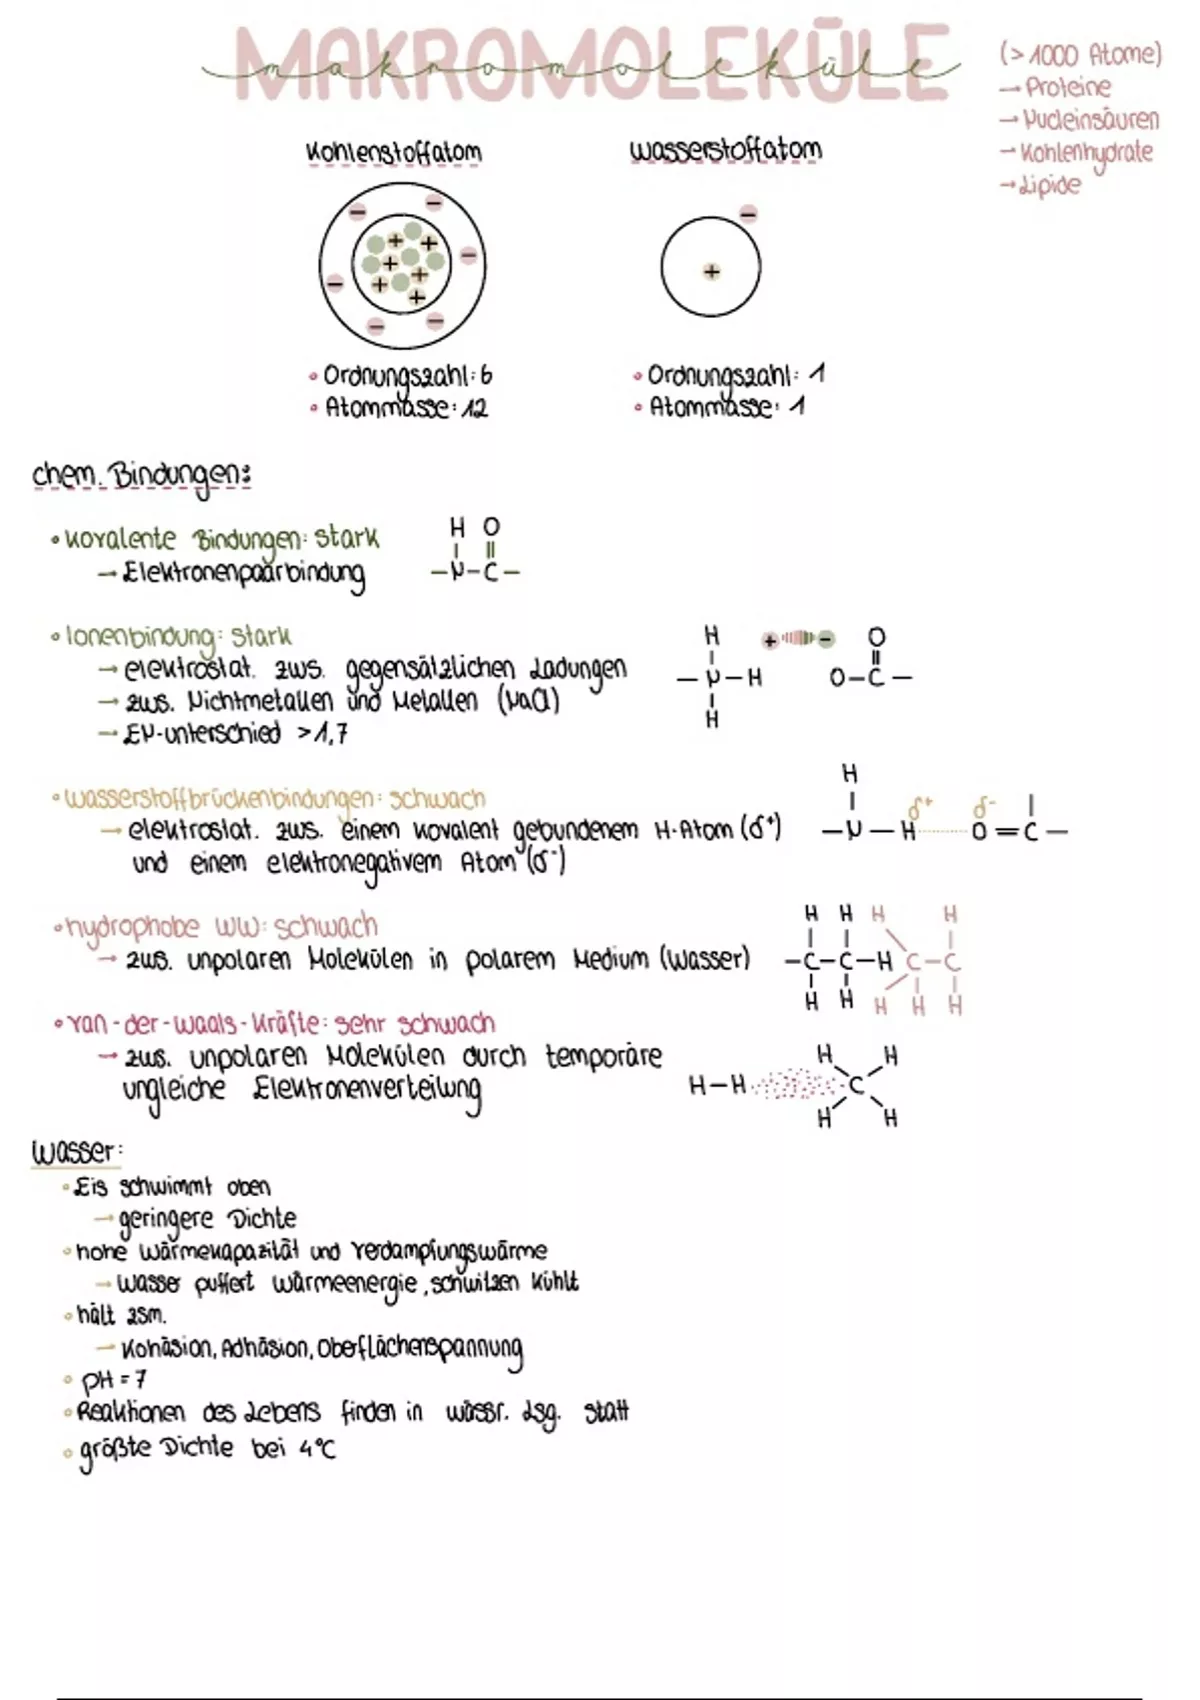 MAKROMOLEKÜLE
makromoleküle
(> 1000 Atome)
→ Proteine
→ Nucleinsäuren
→ Kohlenhydrate
→ Lipide
Kohlenstoffatom
Wasserstoffatom
• Ordnungszahl: 6
• Atommasse: 12
• Ordnungszahl: 1
• Atommasse: 1
chem. Bindungen:
• kovalente Bindungen: stark
→ Elektronenpaarbindung
H O
–N–C–
• Ionenbindung: stark
→ elektrostat. zws. gegensätzlichen Ladungen
→ zws. Nichtmetallen und Metallen (NaCl)
→ EN-unterschied > 1,7
H + – O
–N–H O–C–
H
• Wasserstoffbrückenbindungen: schwach
→ elektrostat. zws. einem kovalent gebundenem H-Atom (δ+)
und einem elektronegativem Atom (δ-)
H
δ+ δ-
–N–H O=C–
• hydrophobe WW: schwach
→ zws. unpolaren Molekülen in polarem Medium (Wasser)
H H H H
–C–C–H C–C
H H H H H
• Van-der-Waals-Kräfte: sehr schwach
→ zws. unpolaren Molekülen durch temporäre
ungleiche Elektronenverteilung
H H
H–H C
H H
Wasser:
• Eis schwimmt oben
→ geringere Dichte
• hohe Wärmekapazität und Verdampfungswärme
→ Wasser puffert Wärmeenergie, schwitzen kühlt
• hält zsm.
→ Kohäsion, Adhäsion, Oberflächenspannung
• pH = 7
• Reaktionen des Lebens finden in wässr. Lsg. statt
• größte Dichte bei 4°C